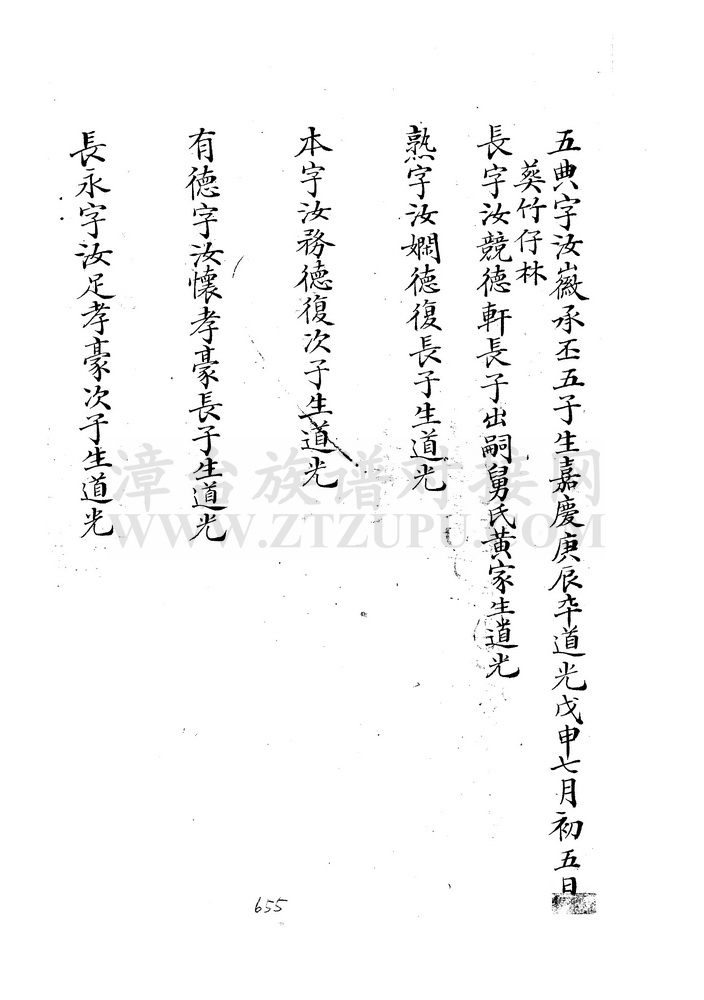 五典字汝嶶承丕五子生嘉慶庚辰卒道光戊申七月初五日
葵竹仔林
長字汝競德軒長子出嗣舅氏黄家生道光
熟字汝嫻德復長子生道光
本字汝務德復次子生道光
有德字汝懷孝豪長子生道光
長永字汝足孝豪次子生道光
漳台族谱对接网
WWW.ZTZUPU.COM
655